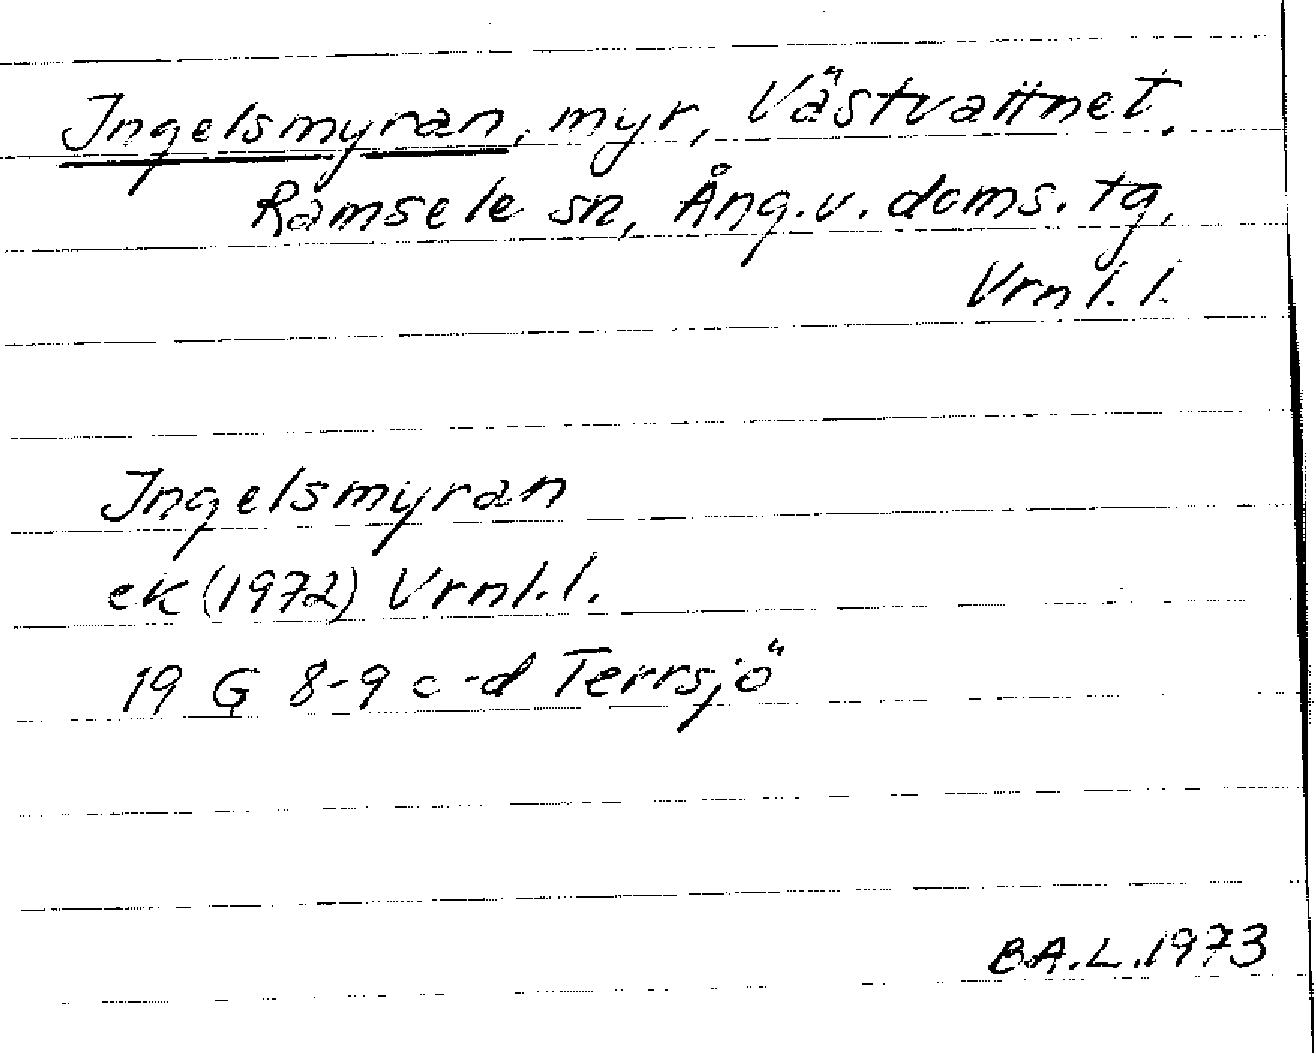 Ingelsmyran, myr, Västvattnet,
Ramsele sn, Ång.v. doms. tg,
Vrnl. l.
Ingelsmyran
ek (1972) Vrnl. l.
19 G 8-9 c-d Terrsjö
B.A.L. 1973